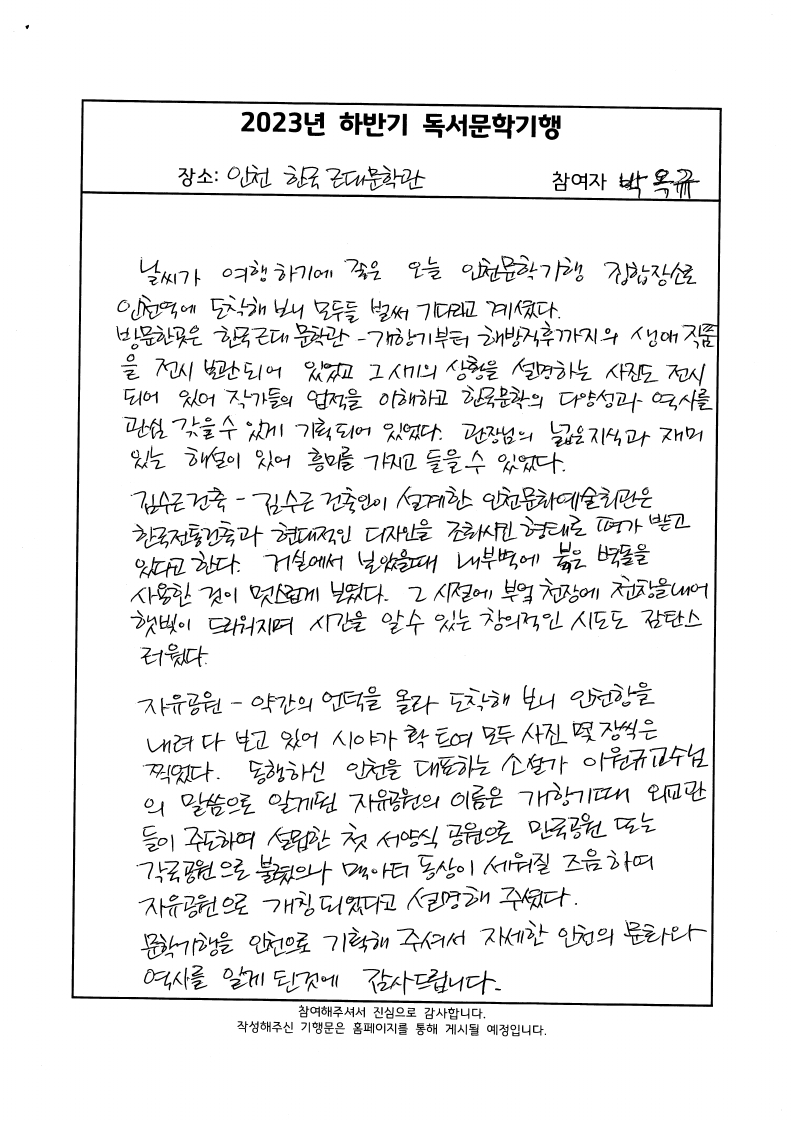 2023년 하반기 독서문학기행
장소: 인천 한국근대문학관 참여자 박옥규
날씨가 여행하기에 좋은 오늘 인천문학기행 집합장소로
인천역에 도착해 보니 모두들 벌써 기다리고 계셨다.
방문한곳은 한국근대문학관 - 개항기부터 해방직후까지의 생애 작품
을 전시 보관되어 있었고 그 시기의 상황을 설명하는 사진도 전시
되어 있어 작가들의 업적을 이해하고 한국문학의 다양성과 역사를
관심 갖을수 있게 기획되어 있었다. 관장님의 넓은지식과 재미
있는 해설이 있어 흥미를 가지고 들을수 있었다.
김수근건축 - 김수근 건축인이 설계한 인천문화예술회관은
한국전통건축과 현대적인 디자인을 조화시킨 형태로 평가 받고
있다고 한다. 거실에서 보았을때 내부벽에 붉은 벽돌을
사용한 것이 멋스럽게 보였다. 그 시절에 부엌 천장에 천창을내어
햇빛이 드리워지며 시간을 알수 있는 창의적인 시도도 감탄스
러웠다.
자유공원 - 약간의 언덕을 올라 도착해 보니 인천항을
내려 다 보고 있어 시야가 확 트여 모두 사진 몇 장씩은
찍었다. 동행하신 인천을 대표하는 소설가 이원규교수님
의 말씀으로 알게된 자유공원의 이름은 개항기때 외교관
들이 주도하여 설립한 첫 서양식 공원으로 만국공원 또는
각국공원으로 불렸으나 맥아더 동상이 세워질 즈음하여
자유공원으로 개칭되었다고 설명해 주셨다.
문학기행을 인천으로 기획해 주셔서 자세한 인천의 문화와
역사를 알게 된것에 감사드립니다.
참여해주셔서 진심으로 감사합니다.
작성해주신 기행문은 홈페이지를 통해 게시될 예정입니다.